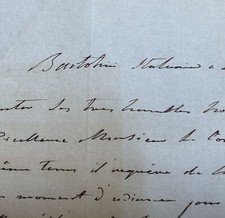 Bartolini Statuaire a
ses très humbles
Excellence Monsieur le Co
même tems il requière de
moment d'audience pour